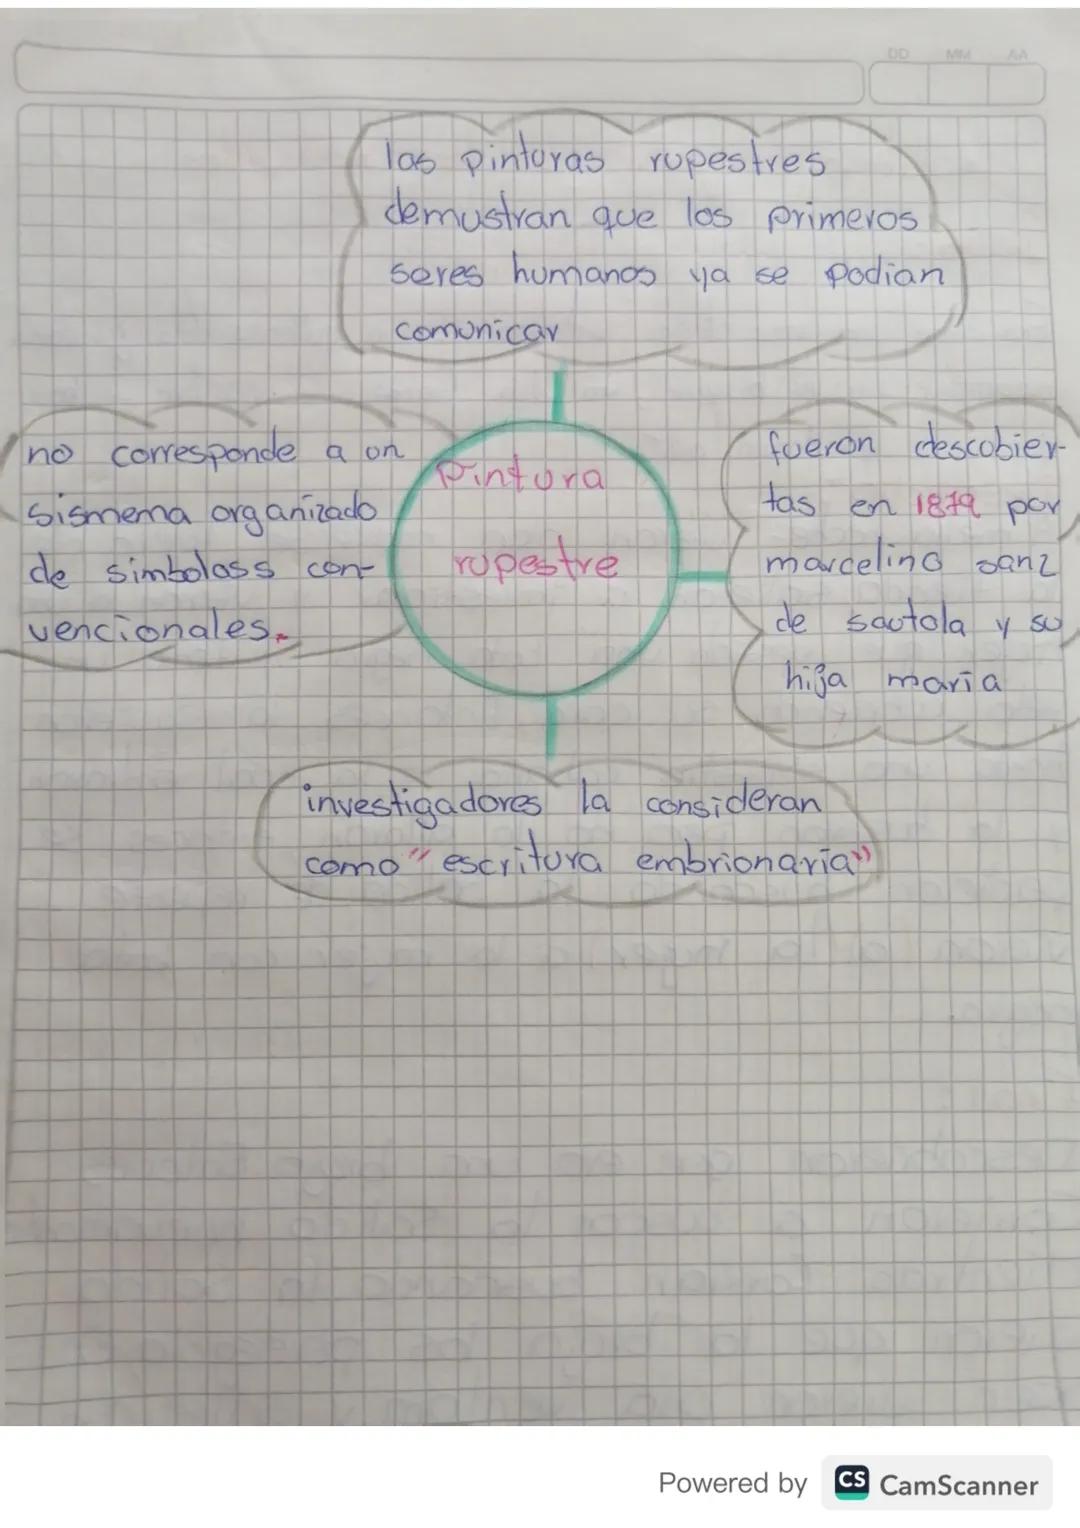 DD MM AA
las pinturas rupestres
demustran que los primeros
seres humanos ya se podian
comunicar
no corresponde a un
sismema organizado
de simbolass con-
vencionales.
Pintura
rupestre
fueron descobier-
tas en 1879 por
marcelino sanz
de sautola y su
hija maría
investigadores la consideran
como "escritura embrionaria"
Powered by CS CamScanner